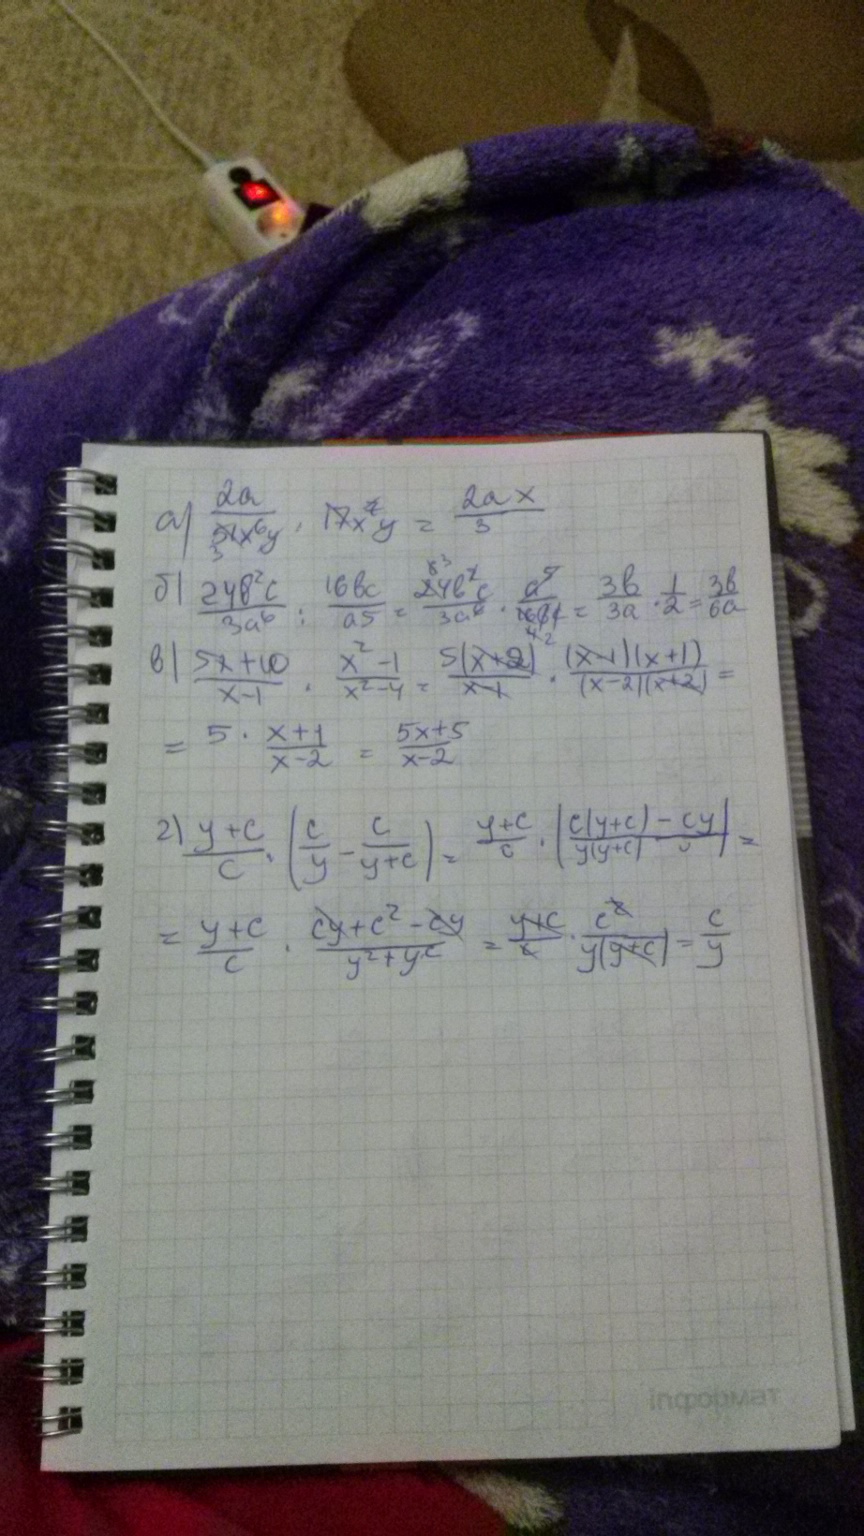 а) 2a/51x⁶y · 17x⁷y = 2ax/3
б) 24b²c/3a⁶ : 16bc/a5 = 24b²c/3a⁶ · a⁵/16bc = 3b/3a · 1/2 = 3b/6a
в) 5x+10/x-1 · x²-1/x²-4 = 5(x+2)/x-1 · (x-1)(x+1)/(x-2)(x+2) =
= 5 · x+1/x-2 = 5x+5/x-2
г) y+c/c · (c/y - c/y+c) = y+c/c · (c(y+c)-cy/y(y+c)) =
= y+c/c · cy+c²-cy/y²+yc = y+c/c · c²/y(y+c) = c/y
інформат